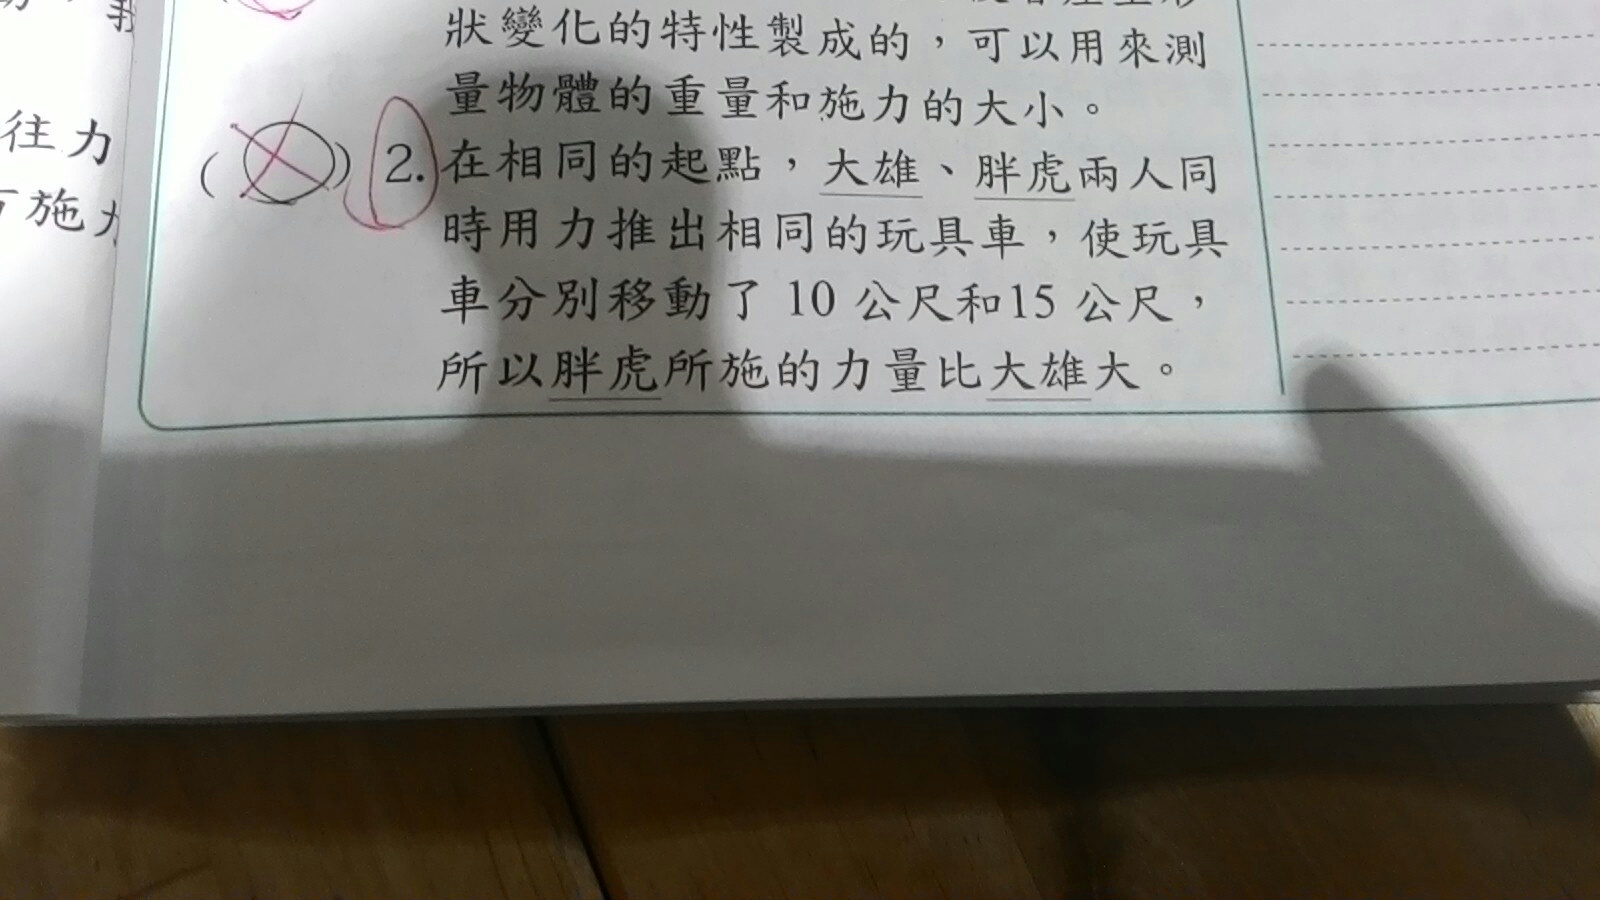 狀變化的特性製成的，可以用來測
量物體的重量和施力的大小。
( ) 2.在相同的起點，大雄、胖虎兩人同
時用力推出相同的玩具車，使玩具
車分別移動了 10 公尺和15 公尺，
所以胖虎所施的力量比大雄大。
我
往力
施力